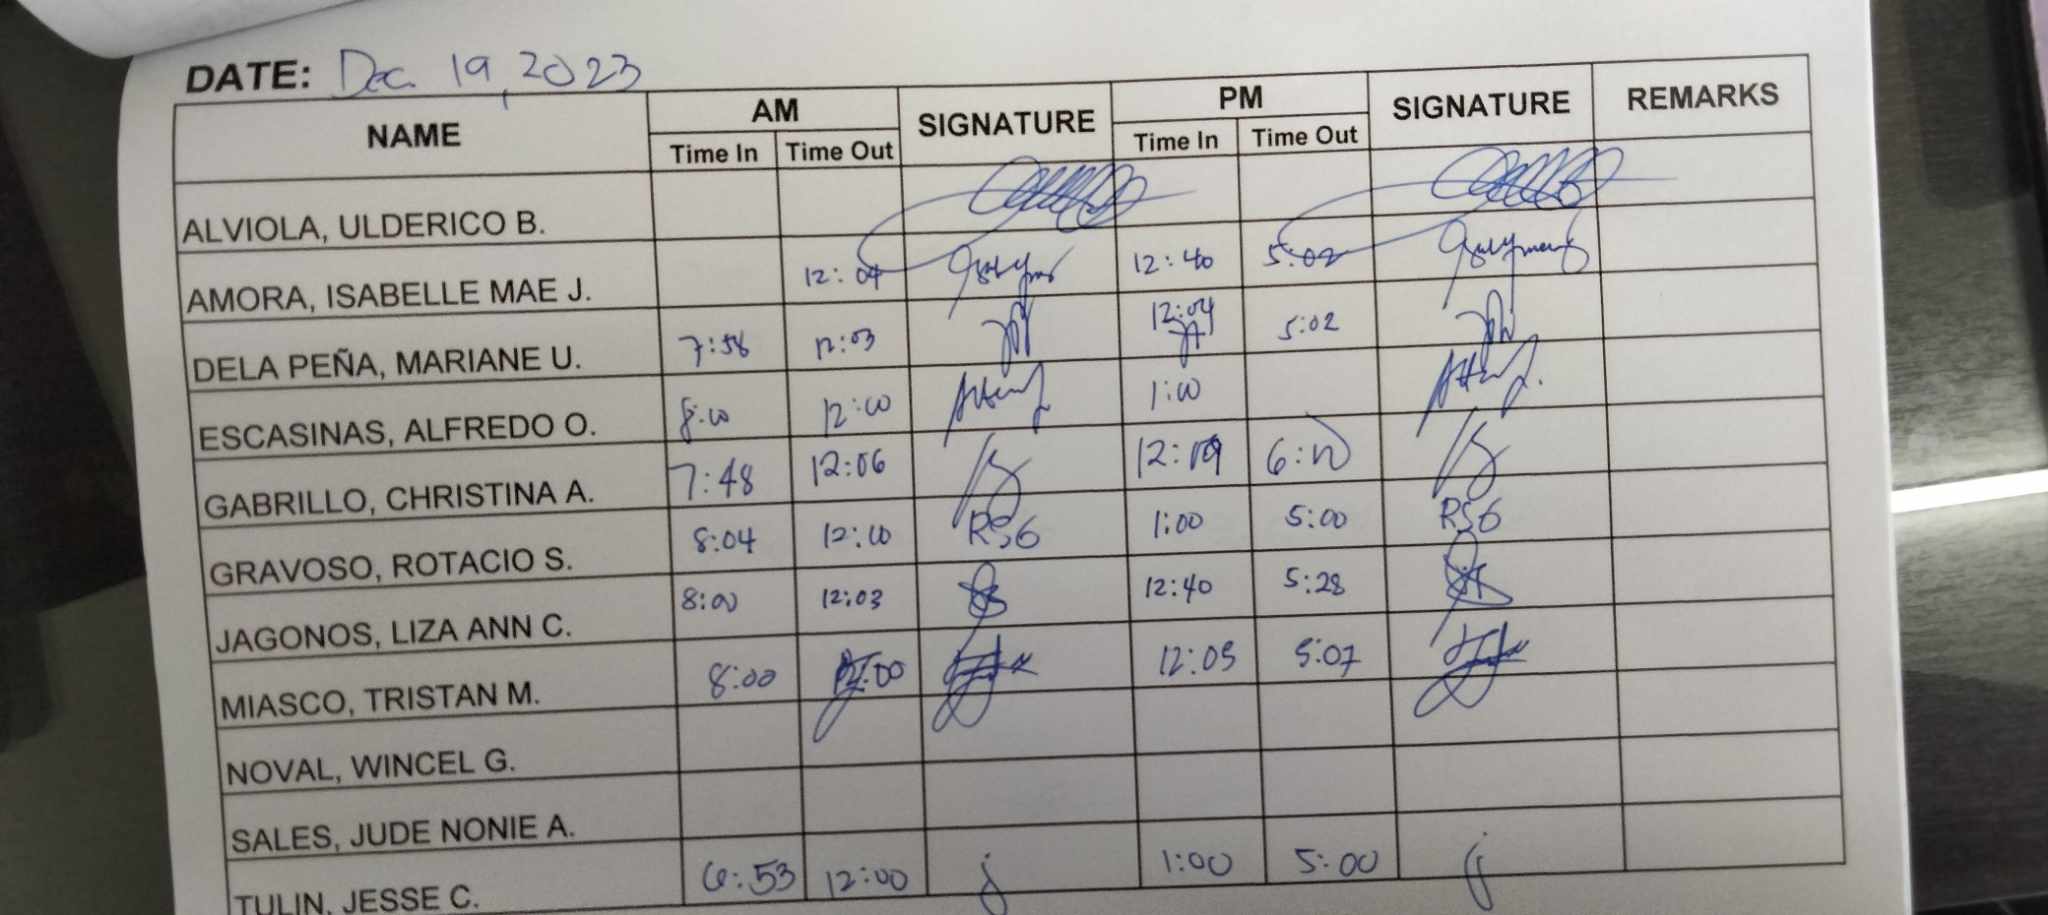 DATE: Dec. 19, 2023
NAME AM SIGNATURE PM SIGNATURE REMARKS
Time In Time Out Time In Time Out
ALVIOLA, ULDERICO B.
AMORA, ISABELLE MAE J. 12:04 12:40 5:02
DELA PEÑA, MARIANE U. 7:58 12:03 12:04 5:02
ESCASINAS, ALFREDO O. 8:00 12:00 1:00
GABRILLO, CHRISTINA A. 7:48 12:06 6:10
GRAVOSO, ROTACIO S. 8:04 12:10 RSG 1:00 5:00 RSG
JAGONOS, LIZA ANN C. 8:00 12:03 12:40 5:28
MIASCO, TRISTAN M. 8:00 12:00 12:05 5:07
NOVAL, WINCEL G.
SALES, JUDE NONIE A.
TULIN, JESSE C. 6:53 12:00 1:00 5:00